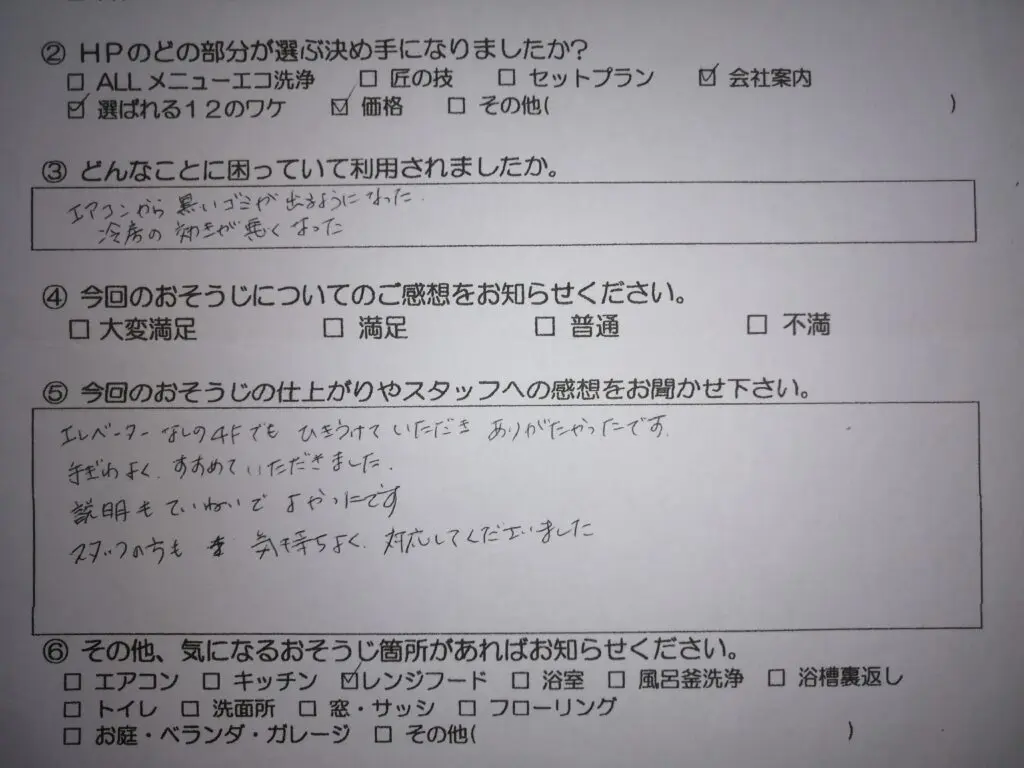 ② ＨＰのどの部分が選ぶ決め手になりましたか?
□ ALL メニューエコ洗浄 □ 匠の技 □ セットプラン ☑ 会社案内
☑ 選ばれる１２のワケ ☑ 価格 □ その他( )
③ どんなことに困っていて利用されましたか。
エアコンから 黒いゴミが 出るようになった.
冷房の 効きが 悪く なった
④ 今回のおそうじについてのご感想をお知らせください。
□ 大変満足 □ 満足 □ 普通 □ 不満
⑤ 今回のおそうじの仕上がりやスタッフへの感想をお聞かせ下さい。
エレベーター なしの 4F でも ひきうけて いただき ありがたかったです.
手ぎわ よく. すすめて いただきました.
説明も ていねいで よかったです
スタッフの方も 気持ちよく. 対応してくださいました
⑥ その他、気になるおそうじ箇所があればお知らせください。
□ エアコン □ キッチン ☑レンジフード □ 浴室 □ 風呂釜洗浄 □ 浴槽裏返し
□ トイレ □ 洗面所 □ 窓・サッシ □ フローリング
□ お庭・ベランダ・ガレージ □ その他( )